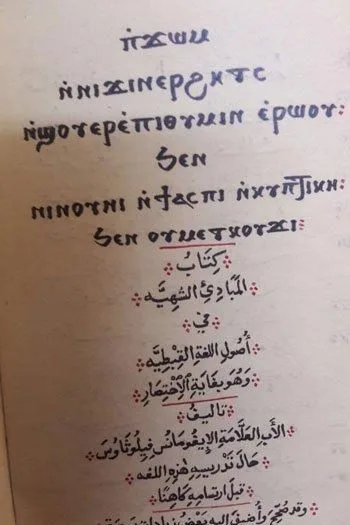 ⲡ̀ϫⲱⲙ
ⲛ̀ⲛⲓϫⲓⲛⲉⲣϩⲏⲧⲥ
ⲛ̀ϣⲟⲩⲉⲣⲉ̀ⲡⲓⲑⲩⲙⲓⲛ ⲉ̀ⲣⲱⲟⲩ:
ϧⲉⲛ
ⲛⲓⲛⲟⲩⲛⲓ ⲛ̀ϯⲁⲥⲡⲓ ⲛ̀ⲕⲩⲡⲧⲓⲕⲏ:
ϧⲉⲛ ⲟⲩⲙⲉⲧⲕⲟⲩϫⲓ:
كِتَابُ
المَبَادِئِ الشَهِيَّه
في
أُصُولِ اللغَةِ القِبْطِيَّه
وَهُوَ بِغَايَةِ الاِخْتِصَارِ
تاليفُ
الأَبِ العَلَّامَةِ الإِيغُومَانُس فِيلُوثَاوُس
حَالَ تَدْرِيسِهِ هٰذِهِ اللغه
قَبْلَ ارتِسامِهِ كَاهِنًا
وقد صُحِّحَ وأُضيفَ إليه بَعْض